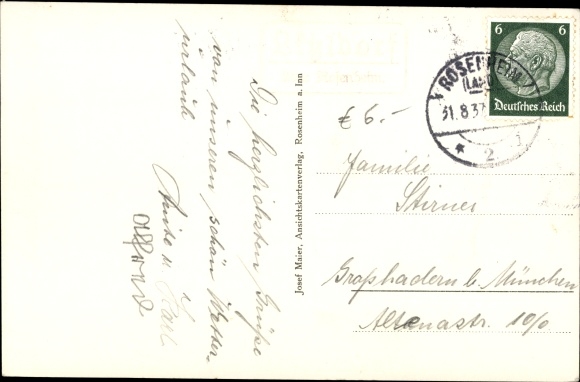 Die herzlichsten Grüße
von unserem schön Wetter-
urlaub
Anita u. Karl
Josef Maier, Ansichtskartenverlag, Rosenheim a. Inn
6 6
Deutsches Reich
ROSENHEIM
(LAND)
31.8.37
* 2
€ 6.-
Familie
Stirner
Großhadern b. München
Altenastr. 10/0